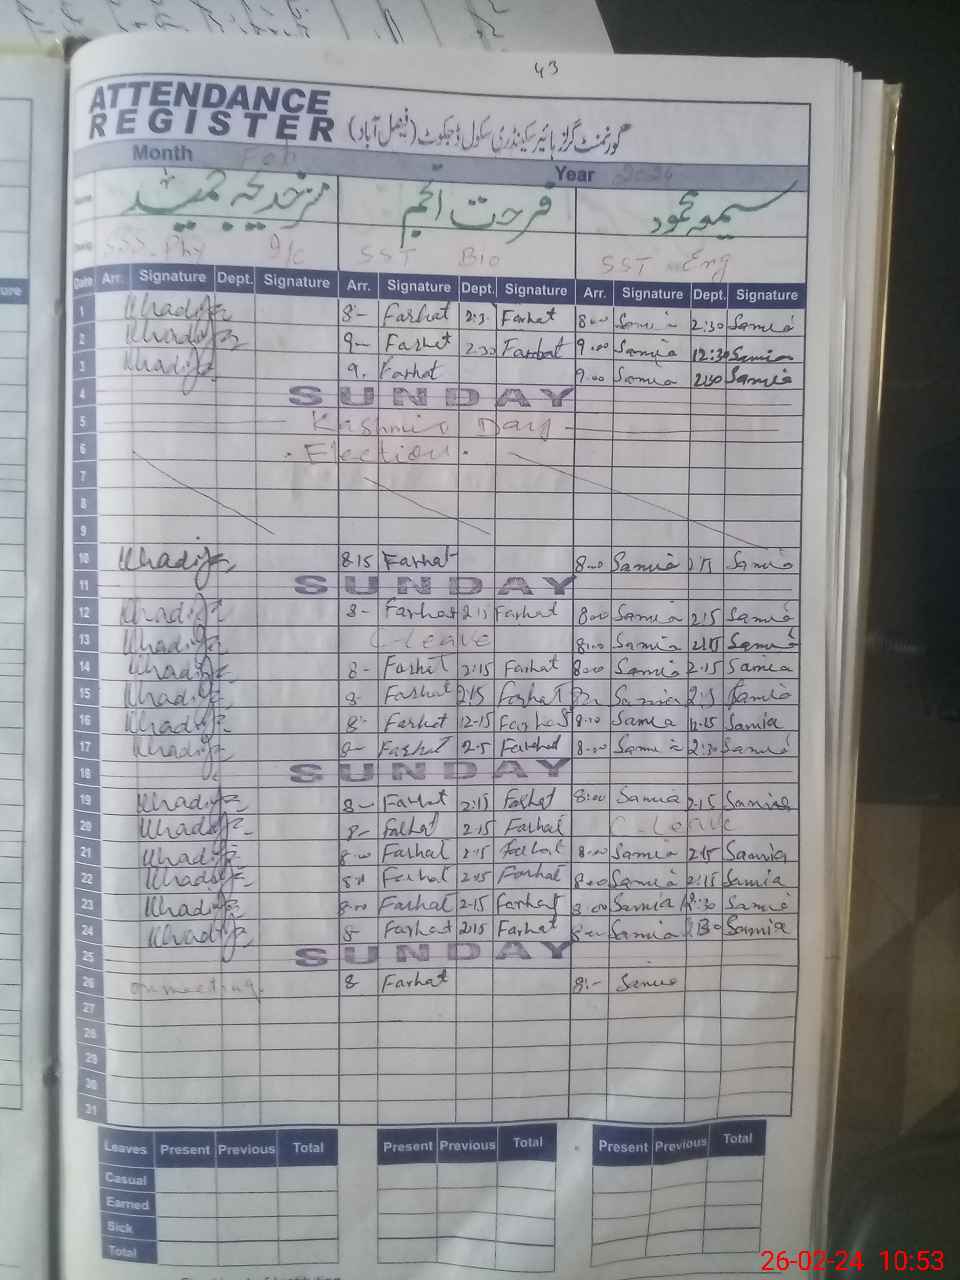 43
ATTENDANCE
REGISTER گورنمنٹ گرلز ہائیر سیکنڈری سکول ڈجکوٹ (فیصل آباد)
Month Feb Year 2024
فرحت انجم سیمعہ محمود
SSS. Phy I/C SST Bio SST Eng
Date Arr. Signature Dept. Signature Arr. Signature Dept. Signature Arr. Signature Dept. Signature
1 Khadija 8- Farhat 2:3 Farhat 8:00 Samia 2:30 Samia
2 Khadija 9- Farhat 2:30 Farhat 9:00 Samia 12:30 Samia
3 Khadija 9. Farhat 9:00 Samia 2:30 Samia
4 SUNDAY
5 Kashmir Day
6 Election
7
8
9
10 Khadija 8.15 Farhat 8:00 Samia Samia
11 SUNDAY
12 Khadija 8- Farhat 2:15 Farhat 8:00 Samia 2:15 Samia
13 Khadija C-Leave 8:00 Samia 2:15 Samia
14 Khadija 8- Farhat 2:15 Farhat 8:00 Samia 2:15 Samia
15 Khadija 8- Farhat 2:15 Farhat Samia 2:15 Samia
16 Khadija 8- Farhat 12-15 Farhat 8:00 Samia 12.15 Samia
17 Khadija 8- Farhat Farhat 8:00 Samia 2:30 Samia
18 SUNDAY
19 Khadija 8- Farhat 2:15 Farhat 8:00 Samia 2.15 Samia
20 Khadija 8- Farhat 2.15 Farhat C-Leave
21 Khadija 8:00 Farhat 2:15 Farhat 8:00 Samia 2:15 Samia
22 Khadija Farhat 2:15 Farhat 8:00 Samia 2:15 Samia
23 Khadija 8:00 Farhat 2-15 Farhat 8:00 Samia 12:30 Samia
24 Khadija 8- Farhat 2:15 Farhat 8:00 Samia Samia
25 SUNDAY
26 on meeting. 8- Farhat 8:- Samia
27
28
29
30
31
Leaves Present Previous Total Present Previous Total Present Previous Total
Casual
Earned
Sick
Total
26-02-24 10:53